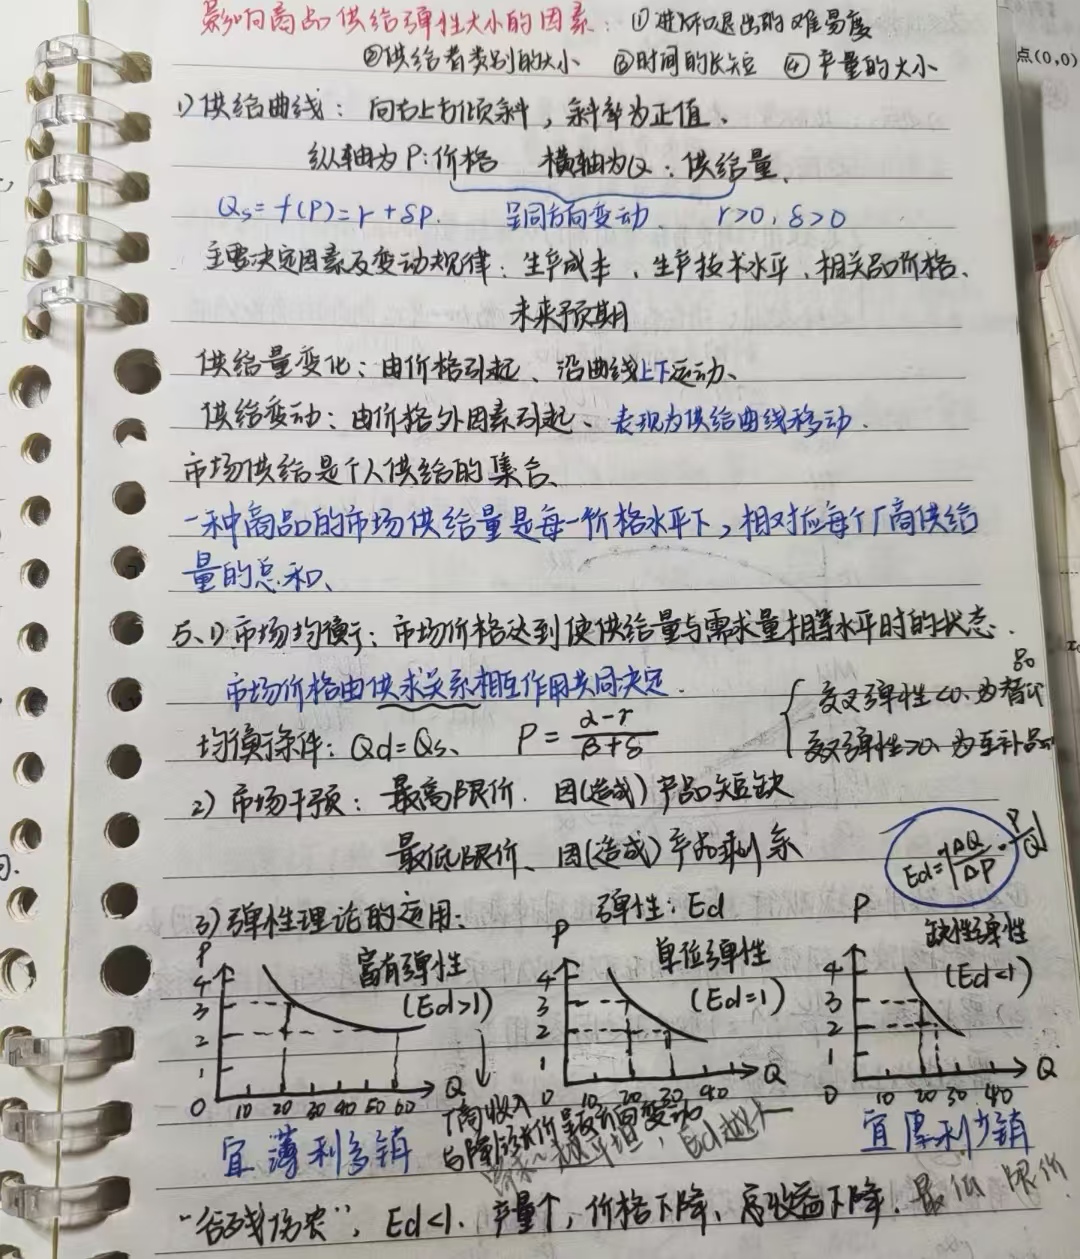 影响商品供给弹性大小的因素：①进入和退出的难易度
②供给者类别的大小 ③时间的长短 ④产量的大小
点(0,0)
1)供给曲线：向右上方倾斜，斜率为正值、
纵轴为P:价格 横轴为Q：供给量、
Qs=f(P)=r+δp. 呈同方向变动 r>0,δ>0
主要决定因素及变动规律：生产成本、生产技术水平、相关品价格、
未来预期
供给量变化：由价格引起、沿曲线上下运动、
供给变动：由价格外因素引起、表现为供给曲线移动.
市场供给是个人供给的集合、
一种商品的市场供给量是每一价格水平下，相对应每个厂商供给
量的总和、
5、1)市场均衡：市场价格达到使供给量与需求量相等水平时的状态.
市场价格由供求关系相互作用共同决定.
品
交叉弹性<0.为替代
均衡条件：Qd=Qs、 P=α-r/β+δ
交叉弹性>0、为互补品
2)市场干预：最高限价．因(造成)产品短缺
最低限价、因(造成)产品剩余
Ed=|ΔQ/ΔP|·P/Q
3)弹性理论的运用： 弹性：Ed
P 富有弹性 P 单位弹性 P 缺乏弹性
(Ed>1) (Ed=1) (Ed<1)
4 4 4
3 3 3
2 2 2
1 1 1
0 10 20 30 40 50 60 Q 0 10 20 30 40 Q 0 10 20 30 40 Q
宜薄利多销 宜厚利少销
厂商收入
与降价呈反方向变动
越平坦，Ed越大
"谷贱伤农"，Ed<1．产量↑，价格下降、总收益下降．最低限价